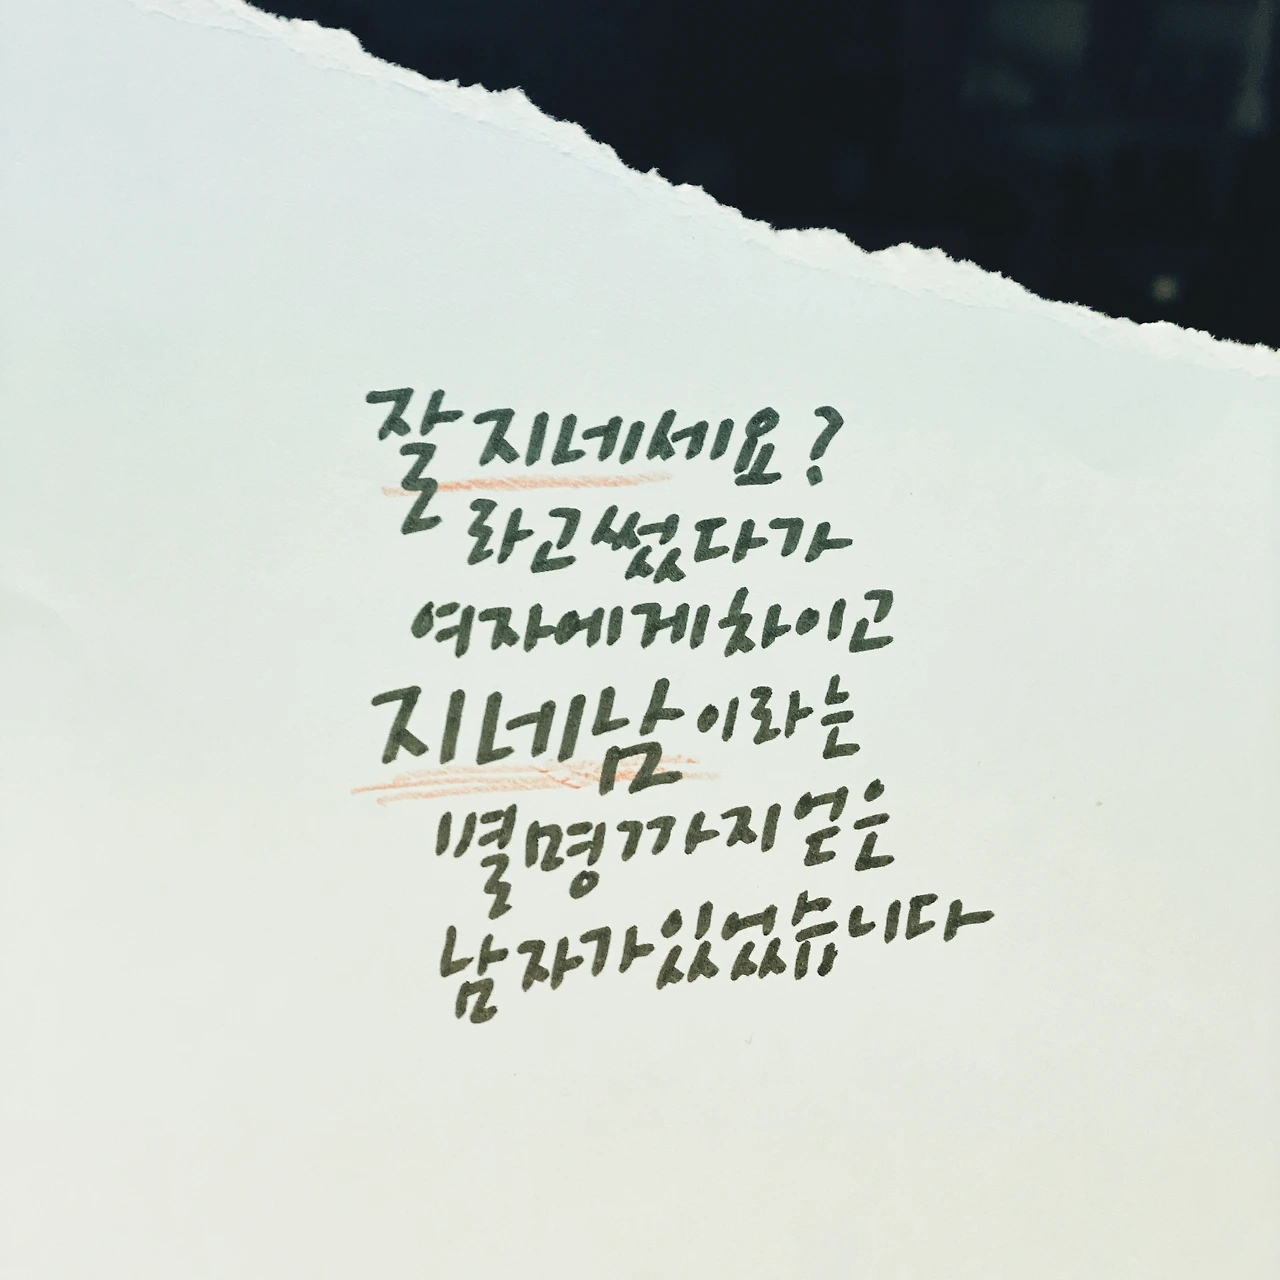 잘 지네세요?
라고 썼다가
여자에게 차이고
지네남이라는
별명까지 얻은
남자가 있었습니다